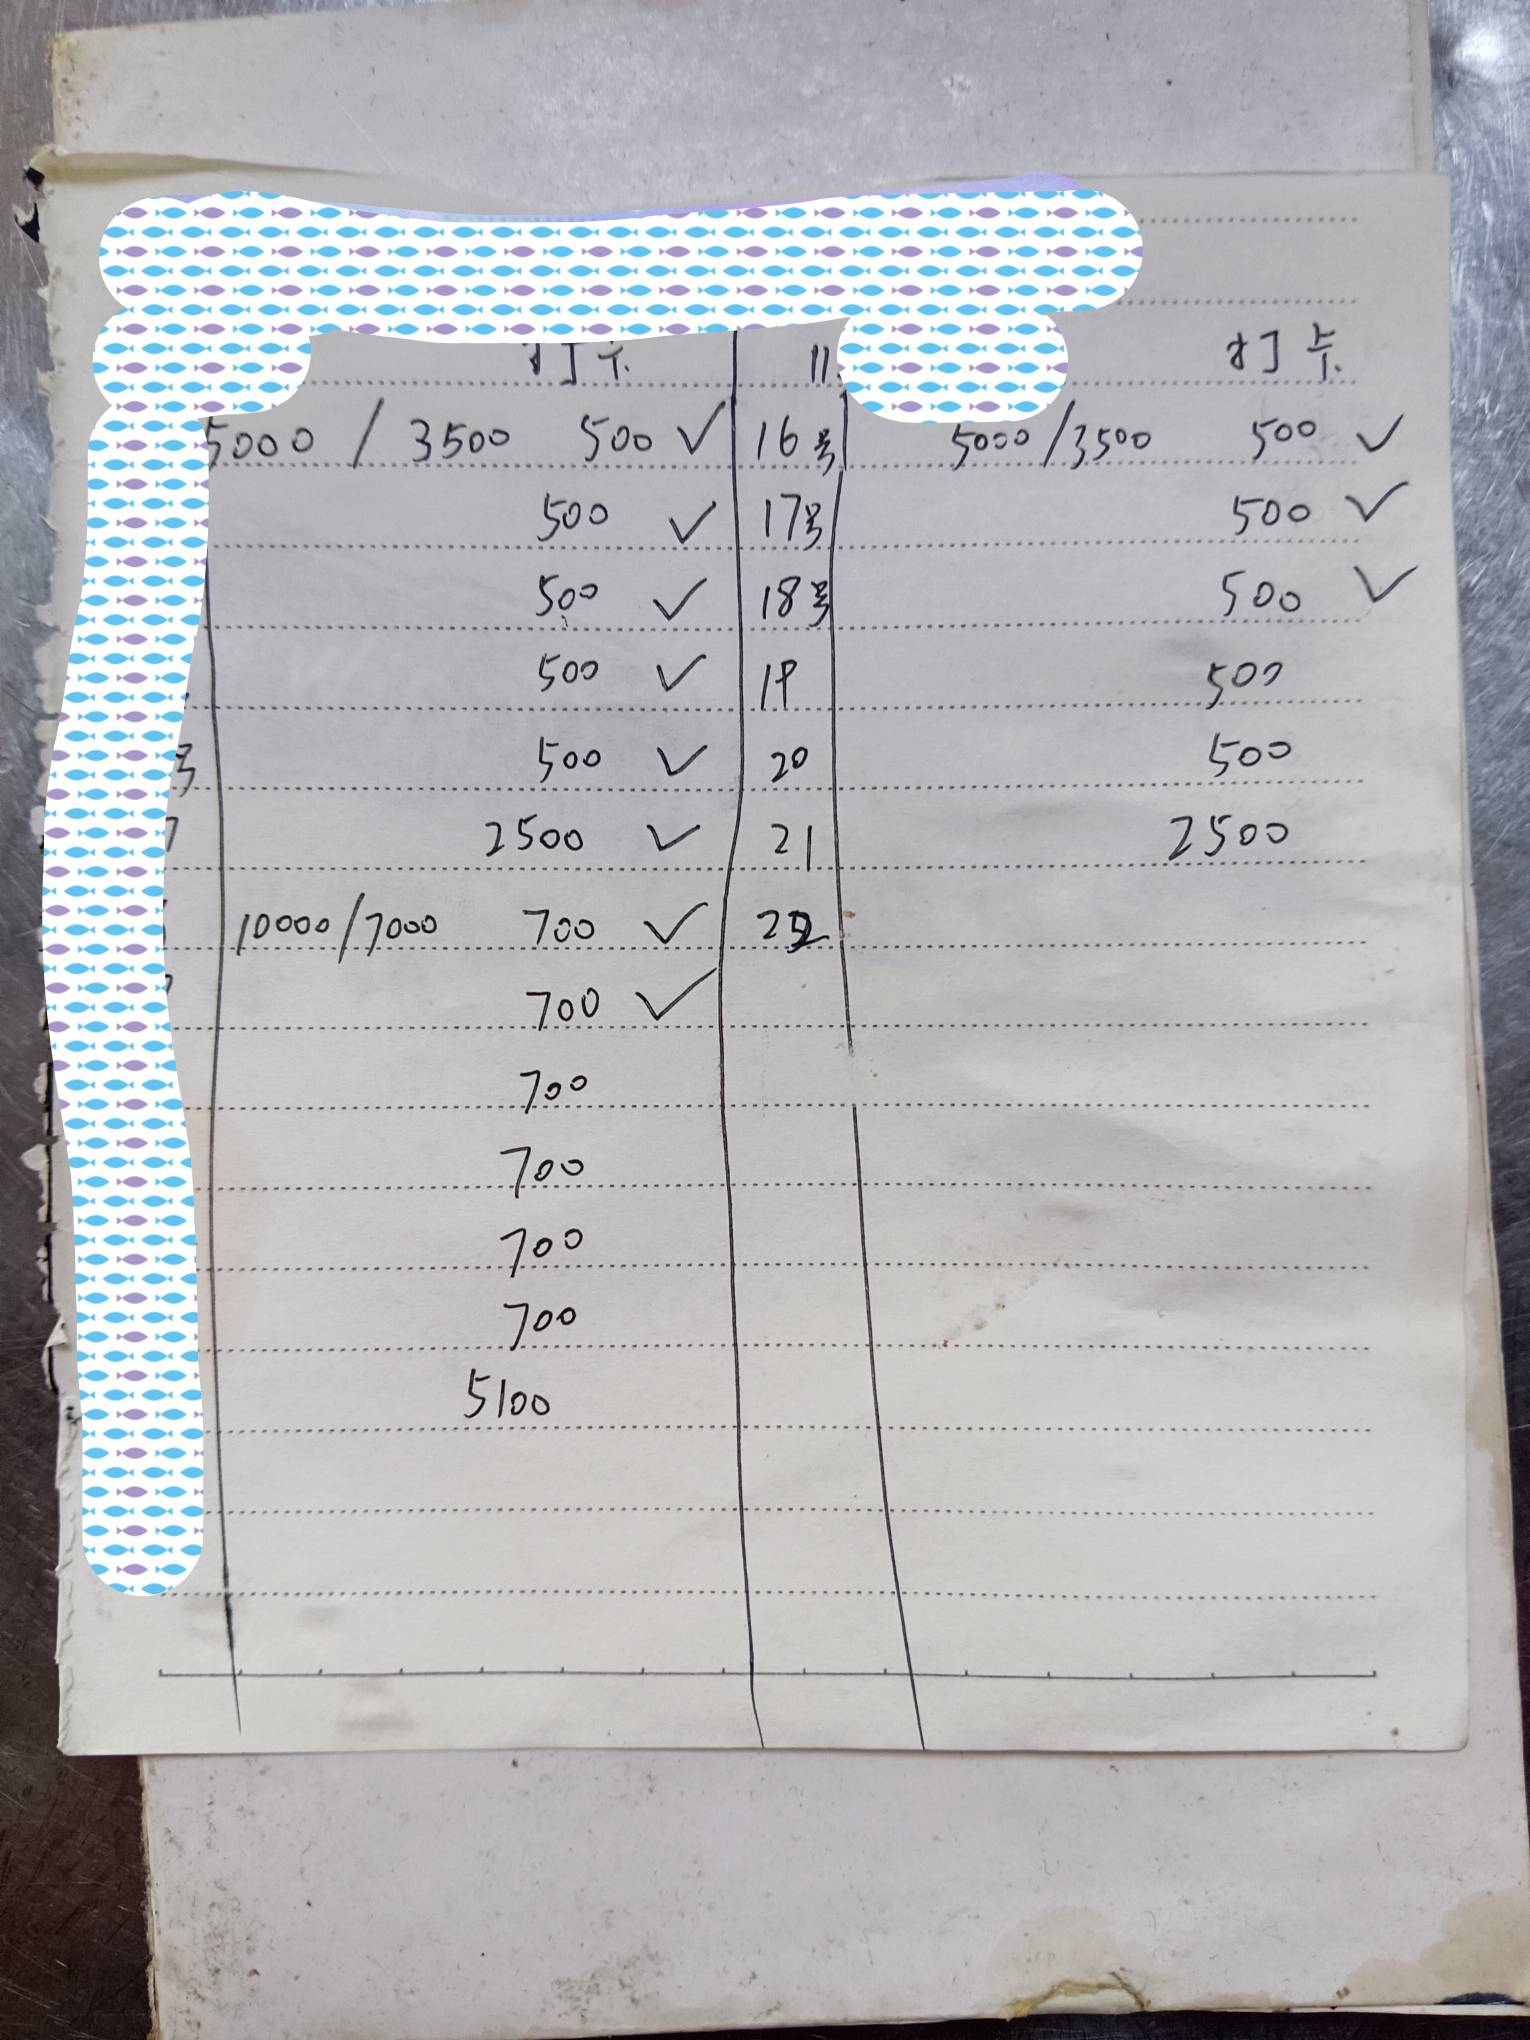 打卡 11. 打卡
5000 / 3500 500 ✓ 16号 5000/3500 500 ✓
500 ✓ 17号 500 ✓
500 ✓ 18号 500 ✓
500 ✓ 19 500
号 500 ✓ 20 500
2500 ✓ 21 2500
10000/7000 700 ✓ 22
700 ✓
700
700
700
700
5100